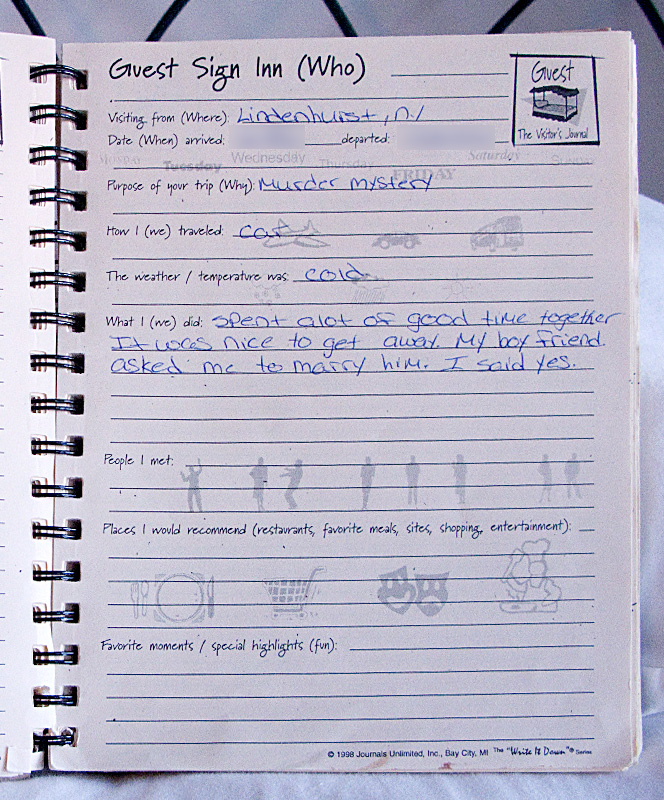 Guest Sign Inn (Who)
Guest
The Visitor's Journal
Visiting from (Where): Lindenhurst, NY
Date (When) arrived: departed:
Monday Tuesday Wednesday Thursday FRIDAY Saturday Sunday
Purpose of your trip (Why): Murder mystery
How I (we) traveled: car
The weather / temperature was: cold
What I (we) did: spent alot of good time together
It was nice to get away. My boy friend
asked me to marry him. I said yes.
People I met:
Places I would recommend (restaurants, favorite meals, sites, shopping, entertainment):
Favorite moments / special highlights (fun):
© 1998 Journals Unlimited, Inc., Bay City, MI The "Write It Down"® Series